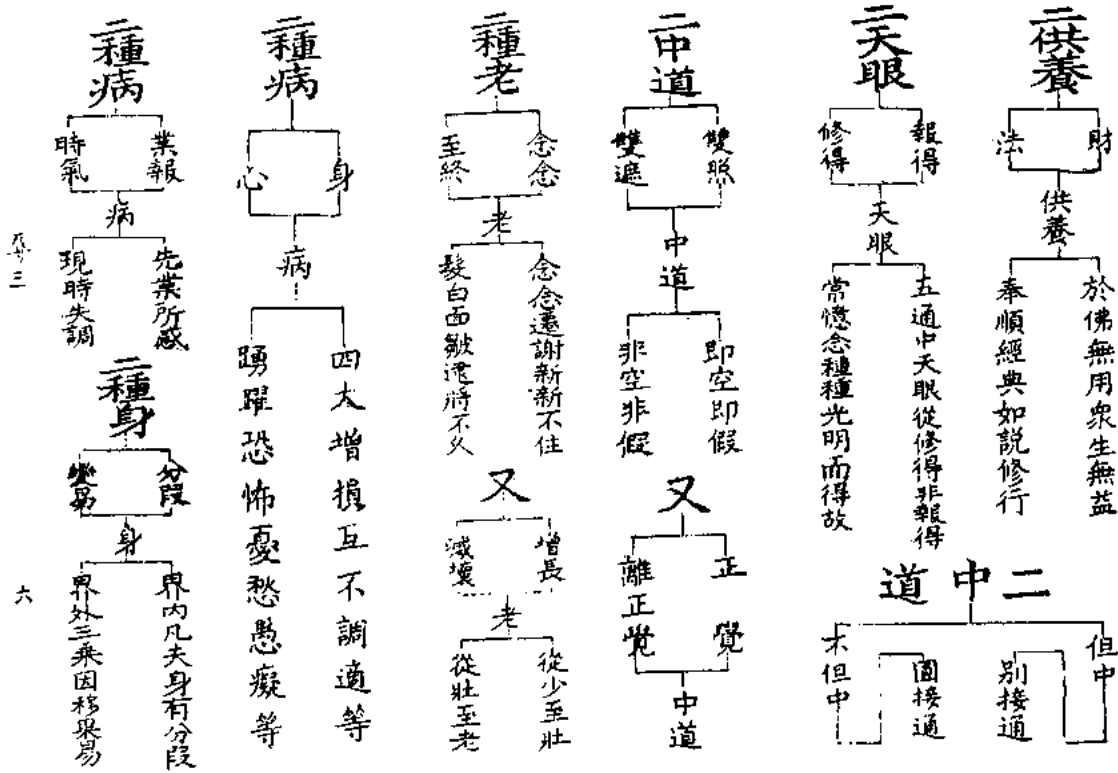 二供養
財
法
供養
於佛無用衆生無益
奉順經典如説修行
二天眼
報得
修得
天眼
五通中天眼從修得非報得
常憶念種種光明而得故
二中道
但中
別接通
圓接通
不但中
二中道
雙照
雙遮
中道
即空即假
非空非假
又
正覺
離正覺
中道
二種老
念念
至終
老
念念遷謝新新不住
髮白面皺逮將不久
又
增長
減壞
老
從少至壯
從壯至老
二種病
身
心
病
四大增損互不調適等
踴躍恐怖憂愁愚癡等
二種病
業報
時氣
病
先業所感
現時失調
二種身
分段
變易
身
界内凡夫身有分段
界外三乘因移果易
三
六